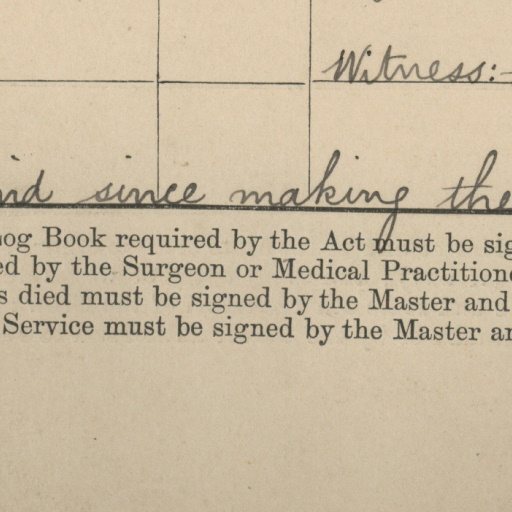 Witness:-
since making the
Book required by the Act must be sig
ed by the Surgeon or Medical Practitione
s died must be signed by the Master and
Service must be signed by the Master an